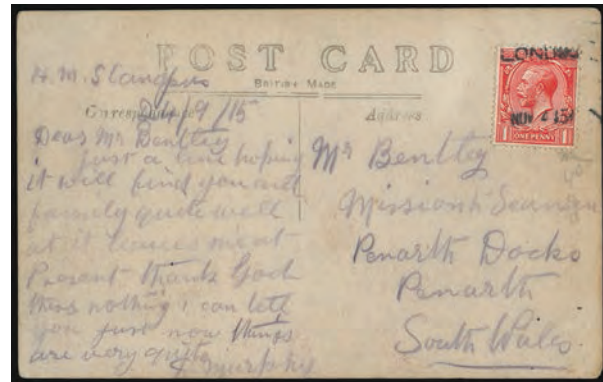 POST CARD
BRITISH MADE
H.M.
24/9/15
Correspondence
Dear Mr Bentley
just a line hoping
it will find you and
family quite well
as it leaves me at
Present thank God
theres nothing i can tell
you just now things
are very quite
J Murphy
Address
LONDON
NOV 4 15
ONE PENNY
Mr Bentley
Missions to Seamen
Penarth Docks
Penarth
South Wales